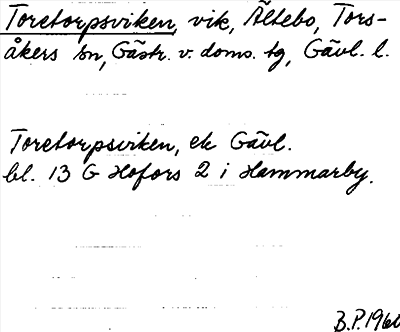 Toretorpsviken, vik, Ältebo, Tors-
åkers sn, Gästr. v. doms. tg, Gävl. l.
Toretorpsviken, ek Gävl.
bl. 13 G Hofors 2 i Hammarby.
B.P. 1960